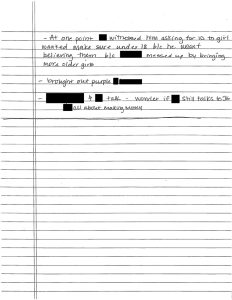 - At one point witnessed him asking for ID to girl
wanted make sure under 18 b/c he wasn't
believing them b/c messed up by bringing
more older girls
- brought out purple
- & talk - wonder if still talks to JE
all about making money